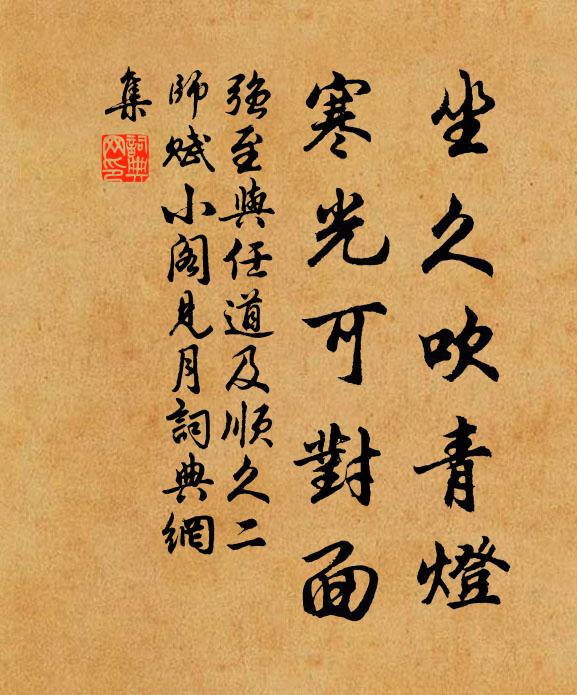 坐久吹青燈
寒光可對面
強至與任道及順久二
師賦小閣見月詞典網
集
詞典網印